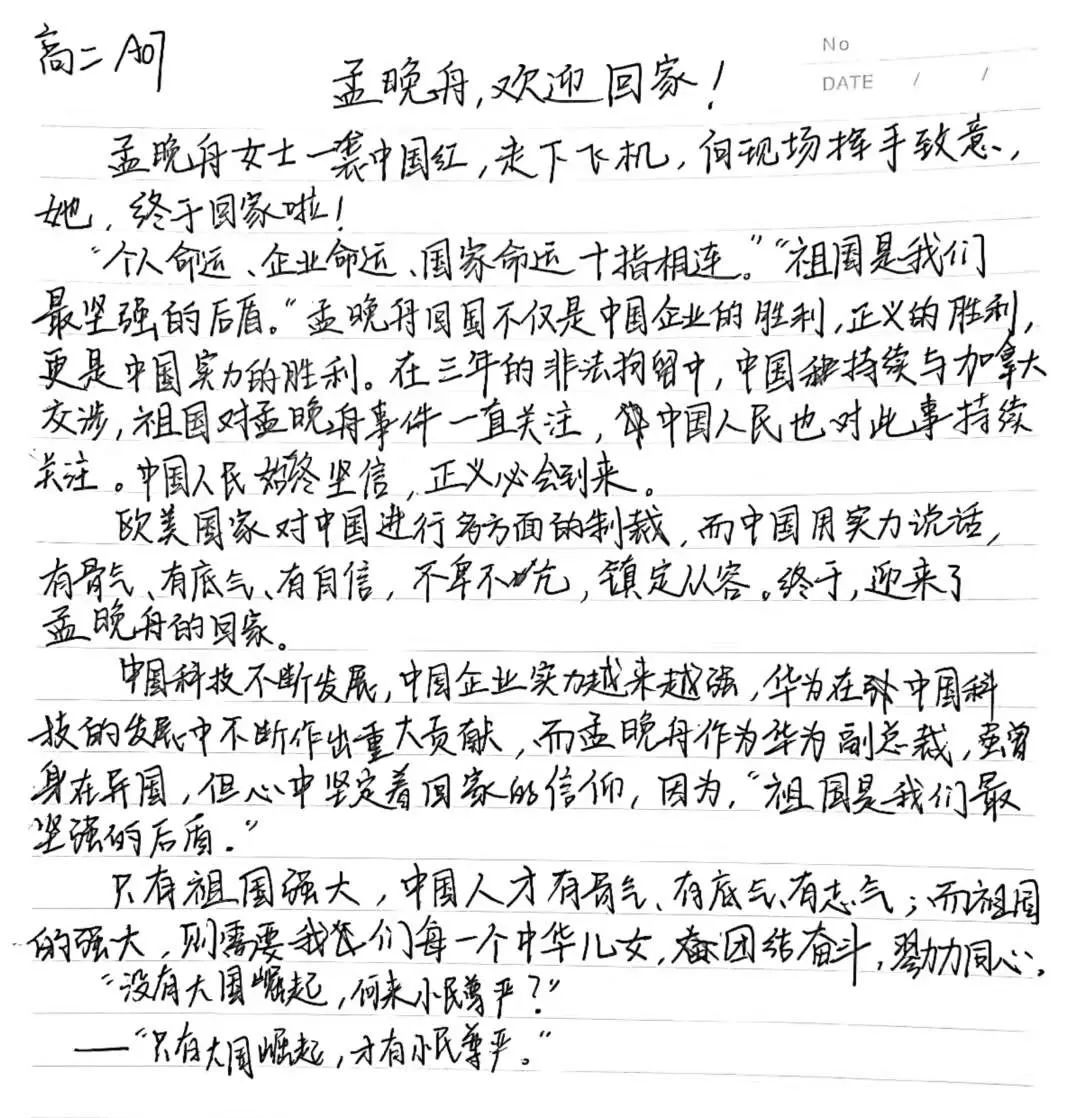 高二 A07
No
DATE / /
孟晚舟,欢迎回家!
孟晚舟女士一袭中国红,走下飞机,向现场挥手致意,
她,终于回家啦!
“个人命运、企业命运、国家命运十指相连。”“祖国是我们
最坚强的后盾。”孟晚舟回国不仅是中国企业的胜利,正义的胜利,
更是中国实力的胜利。在三年的非法拘留中,中国持续与加拿大
交涉,祖国对孟晚舟事件一直关注,中国人民也对此事持续
关注。中国人民始终坚信,正义必会到来。
欧美国家对中国进行多方面的制裁,而中国用实力说话,
有骨气、有底气、有自信,不卑不亢,镇定从容。终于,迎来了
孟晚舟的回家。
中国科技不断发展,中国企业实力越来越强,华为在中国科
技的发展中不断作出重大贡献,而孟晚舟作为华为副总裁,虽曾
身在异国,但心中坚定着回家的信仰,因为,“祖国是我们最
坚强的后盾。”
只有祖国强大,中国人才有骨气、有底气、有志气;而祖国
的强大,则需要我们每一个中华儿女,团结奋斗,勠力同心。
“没有大国崛起,何来小民尊严?”
——“只有大国崛起,才有小民尊严。”